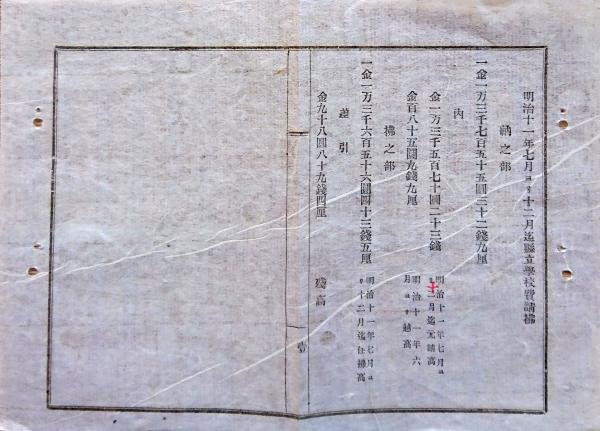 明治十一年七月ヨリ十二月迄縣立學校費請拂
納之部
一金一万三千七百五十五圓三十二錢九厘
内
金一万三千五百七十圓二十三錢
明治十一年七月ヨ
リ十二月迄元請高
金百八十五圓九錢九厘
明治十一年六
月ヨリ越高
拂之部
一金一万三千六百五十六圓四十三錢五厘
明治十一年七月ヨ
リ十二月迄仕拂高
差引
金九十八圓八十九錢四厘
殘高
壹